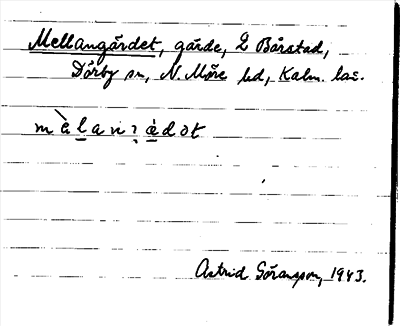 Mellangärdet, gärde, L Bårstad,
Dörby sn, N. Möre hd, Kalm. län.
Astrid Göransson, 1943.